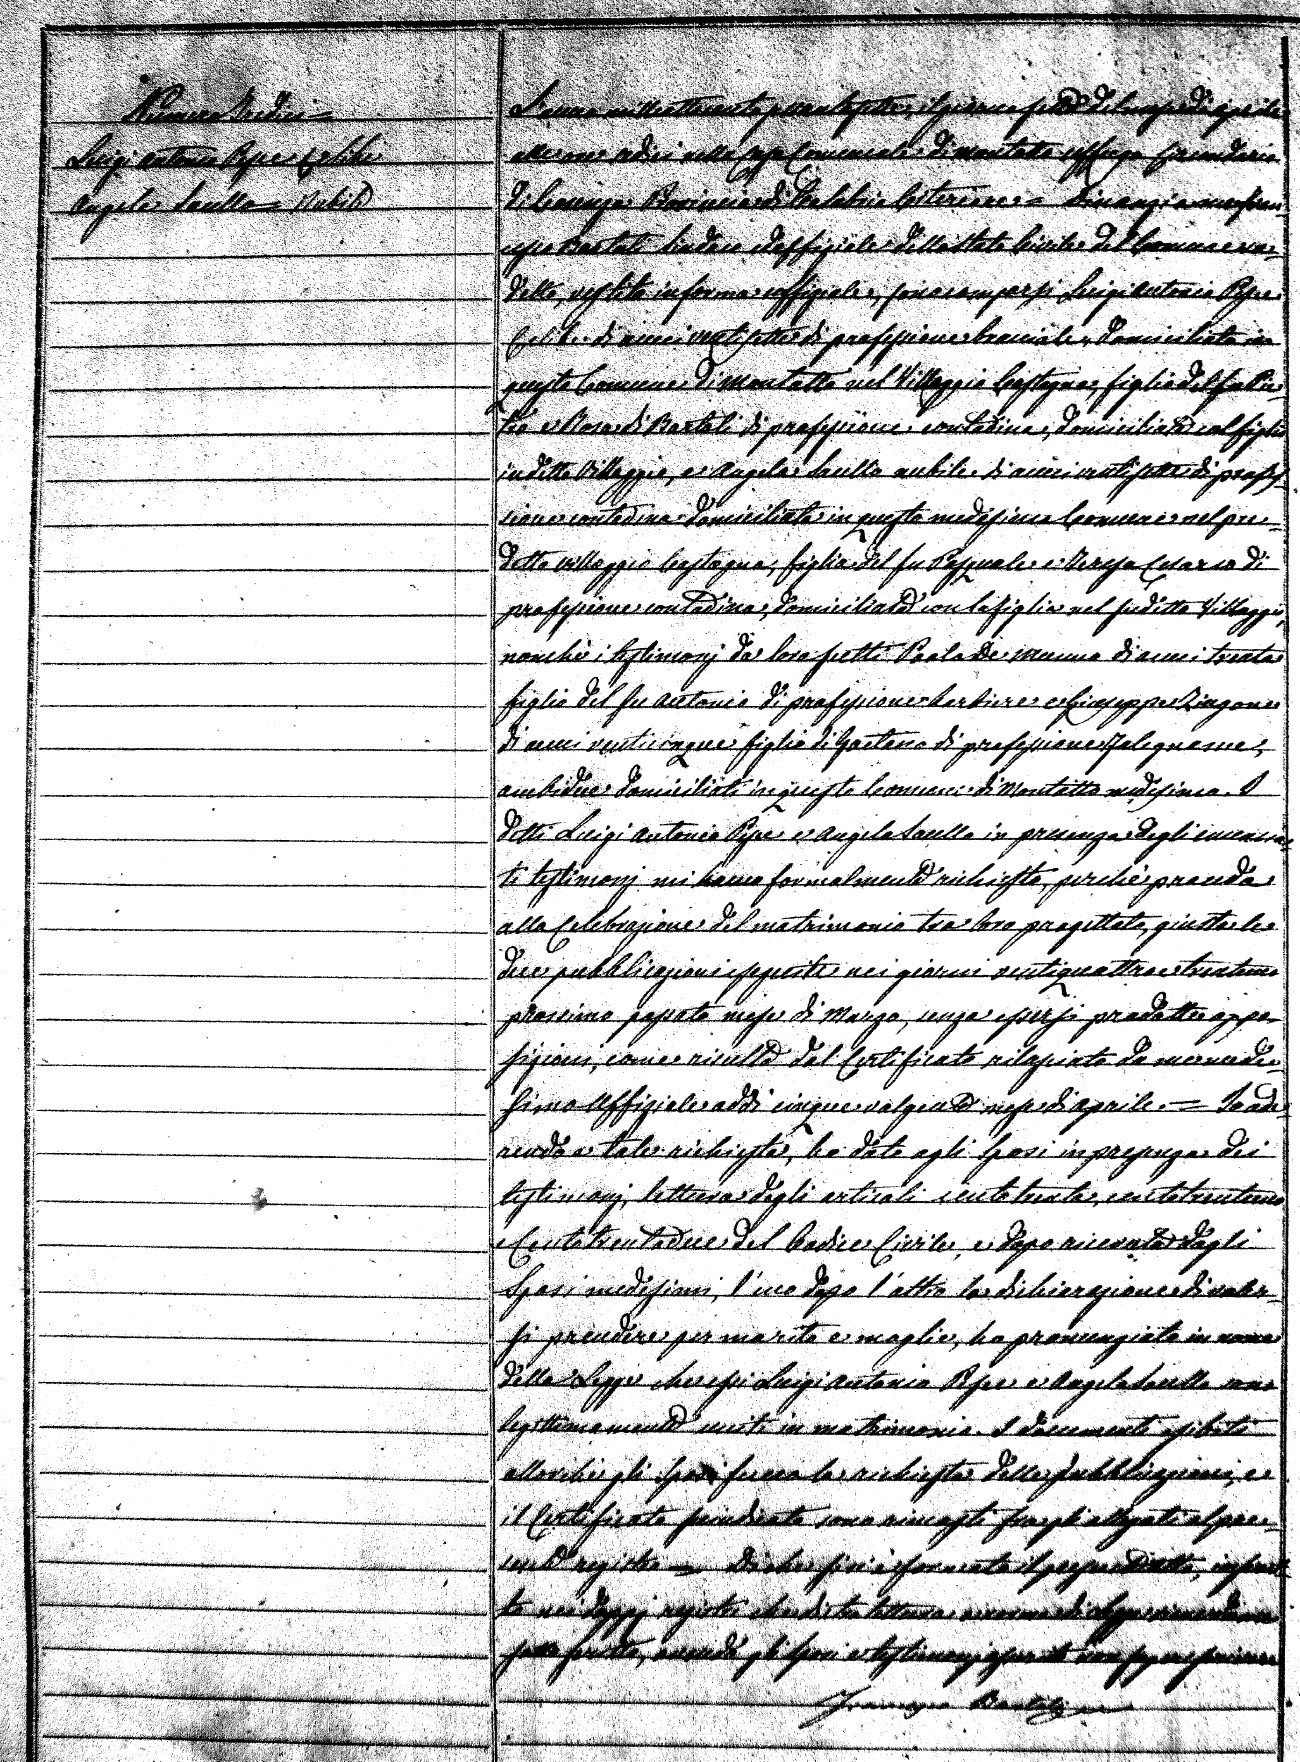 Numero Tredici =
Luigi Antonio Pepe Celibe
Angela Sarullo = Nubile
L'anno milleottocento, il giorno sette del mese di Aprile
alle ore sedici nella Casa Comunale di Montalto Uffugo Circondario
di Cosenza Provincia di Calabria Citeriore = Dinanzi a me Fran-
cesco Bartoli Sindaco ed uffiziale dello Stato Civile del Comune sud-
detto, vestito in forma uffiziale, sono comparsi Luigi Antonio Pepe
Celibe di anni ventisette di professione bracciale, domiciliato in
questo Comune di Montalto nel Villaggio Castagna, figlio del fu
e Rosa di Bartoli di professione contadina, domiciliata col figlio
in detto Villaggio, e Angela nubile di anni ventisette di profes-
sione contadina domiciliata in questo medesimo Comune nel pre-
detto Villaggio Castagna, figlia del fu Pasquale e Teresa Cesario di
professione contadina, domiciliata con la figlia nel sudetto Villaggio,
nonchè i testimonj da loro scelti Paolo De di anni trenta
figlio del fu Antonio di professione barbiere e Giuseppe Zingone
di anni venticinque figlio di Gaetano di professione Falegname,
ambidue domiciliati in questo Comune di Montalto medesimo. I
detti Luigi Antonio Pepe e Angela in presenza degli enuncia-
ti testimonj mi hanno formalmente richiesto, perchè proceda
alla Celebrazione del matrimonio tra loro progettato, giusta le
due pubblicazioni eseguite nei giorni ventiquattro e trentuno
prossimo passato mese di Marzo, senza essersi prodotte oppo-
sizioni, come risulta dal Certificato rilasciato da me mede-
simo Uffiziale addì cinque volgente mese di Aprile. = Io ade-
rendo a tale richiesta, ho dato agli Sposi in presenza dei
testimonj, lettura degli articoli centotrenta, centotrentuno
e Centotrentadue del Codice Civile, e dopo ricevuta dagli
Sposi medesimi, l'uno dopo l'altro la dichiarazione di voler-
si prendere per marito e moglie, ho pronunziato in nome
della Legge che essi Luigi Antonio Pepe e Angela sono
legittimamente uniti in matrimonio. I documenti esibiti
allorchè gli Sposi fecero la richiesta delle pubblicazioni, e
il Certificato sono rimasti fra gli allegati al pre-
sente registro = Di che si è formato il presente atto, inscrit-
to nei doppj registri che di tu lettura a norma di
sottoscritto, avendo gli Sposi e testimonj non sapere scrivere
Francesco Bartoli